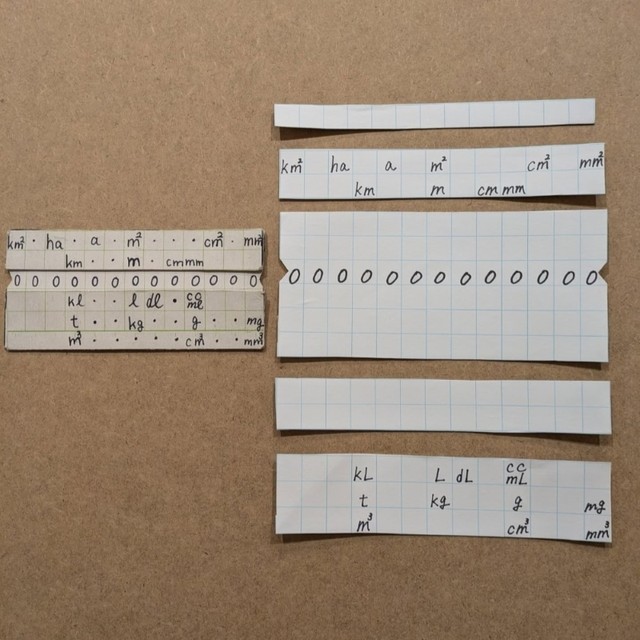 km² · ha · a · m² · · · cm² · mm²
km · · m · cm mm
0 0 0 0 0 0 0 0 0 0 0 0 0
kl · · l dl · cc
ml
t · · kg · · g · · mg
m³ · · · · · cm³ · · mm³
km² ha a m² cm² mm²
km m cm mm
0 0 0 0 0 0 0 0 0 0 0 0 0
kL L dL cc
mL
t kg g mg
m³ cm³ mm³